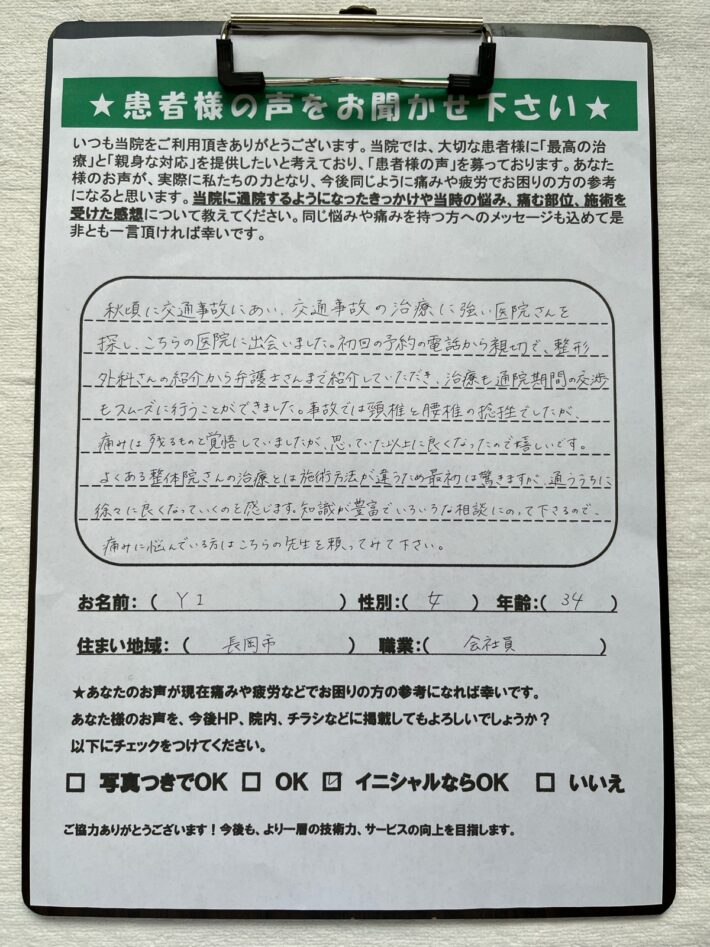 ★患者様の声をお聞かせ下さい★
いつも当院をご利用頂きありがとうございます。当院では、大切な患者様に「最高の治
療」と「親身な対応」を提供したいと考えており、「患者様の声」を募っております。あなた
様のお声が、実際に私たちの力となり、今後同じように痛みや疲労でお困りの方の参考
になると思います。当院に通院するようになったきっかけや当時の悩み、痛む部位、施術を
受けた感想について教えてください。同じ悩みや痛みを持つ方へのメッセージも込めて是
非とも一言頂ければ幸いです。
秋頃に交通事故にあい、交通事故の治療に強い医院さんを
探し、こちらの医院に出会いました。初回の予約の電話から親切で、整形
外科さんの紹介から弁護士さんまで紹介していただき、治療も通院期間の交渉
もスムーズに行うことができました。事故では頸椎と腰椎の捻挫でしたが、
痛みは残るものと覚悟していましたが、思っていた以上に良くなったので嬉しいです。
よくある整体院さんの治療とは施術方法が違うため最初は驚きますが、通ううちに
徐々に良くなっていくのを感じます。知識が豊富でいろいろな相談にのって下さるので、
痛みに悩んでいる方はこちらの先生を頼ってみて下さい。
お名前：（ YI ） 性別：（ 女 ） 年齢：（ 34 ）
住まい地域：（ 長岡市 ） 職業：（ 会社員 ）
★あなたのお声が現在痛みや疲労などでお困りの方の参考になれば幸いです。
あなた様のお声を、今後HP、院内、チラシなどに掲載してもよろしいでしょうか？
以下にチェックをつけてください。
□ 写真つきでOK □ OK ☑ イニシャルならOK □ いいえ
ご協力ありがとうございます！今後も、より一層の技術力、サービスの向上を目指します。